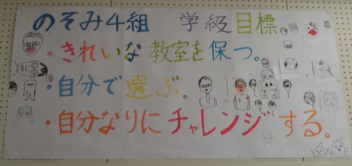 のぞみ4組 学級目標
・きれいな教室を保つ。
・自分で選ぶ。
・自分なりにチャレンジする。